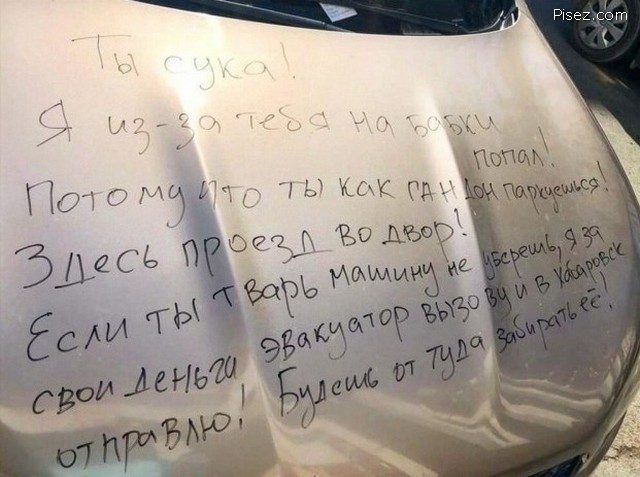 Pisez.com
Ты сука!
Я из-за тебя на бабки
попал!
Потому что ты как гандон паркуешься!
Здесь проезд во двор!
Если ты тварь машину не уберешь, я за
свои деньги эвакуатор вызову и в Хабаровск
отправлю! Будешь от туда забирать её!